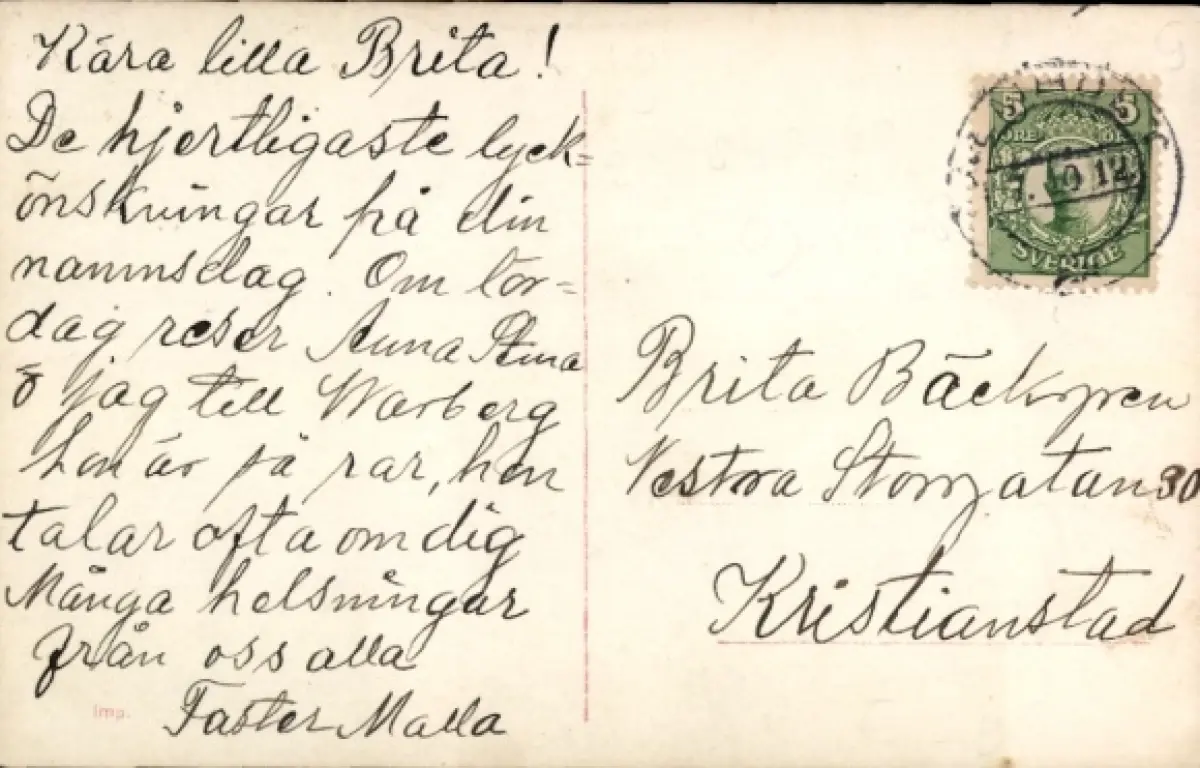 Kära lilla Brita!
De hjertligaste lyck=
önskningar på din
namnsdag. Om tor=
dag reser Anna Stina
& jag till Warberg
hon är så rar, hon
talar ofta om dig
Många helsningar
från oss alla
Faster Malla
Imp.
5 5
ÖRE
SVERIGE
12
Brita Bäckgren
Vestra Storgatan 30
Kristianstad